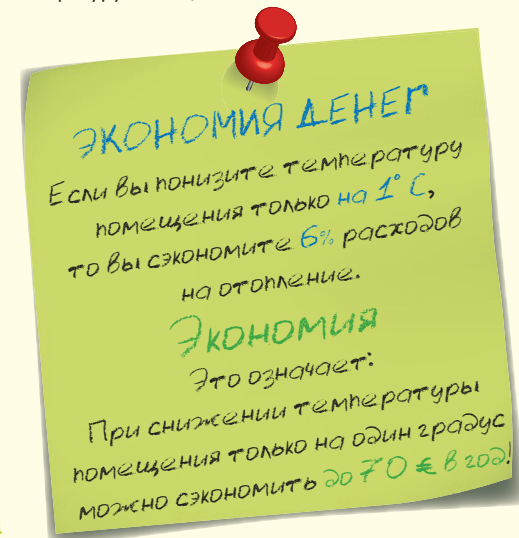 ЭКОНОМИЯ ДЕНЕГ
Если вы понизите температуру
помещения только на 1° C,
то вы сэкономите 6% расходов
на отопление.
Экономия
Это означает:
При снижении температуры
помещения только на один градус
можно сэкономить до 70 € в год!